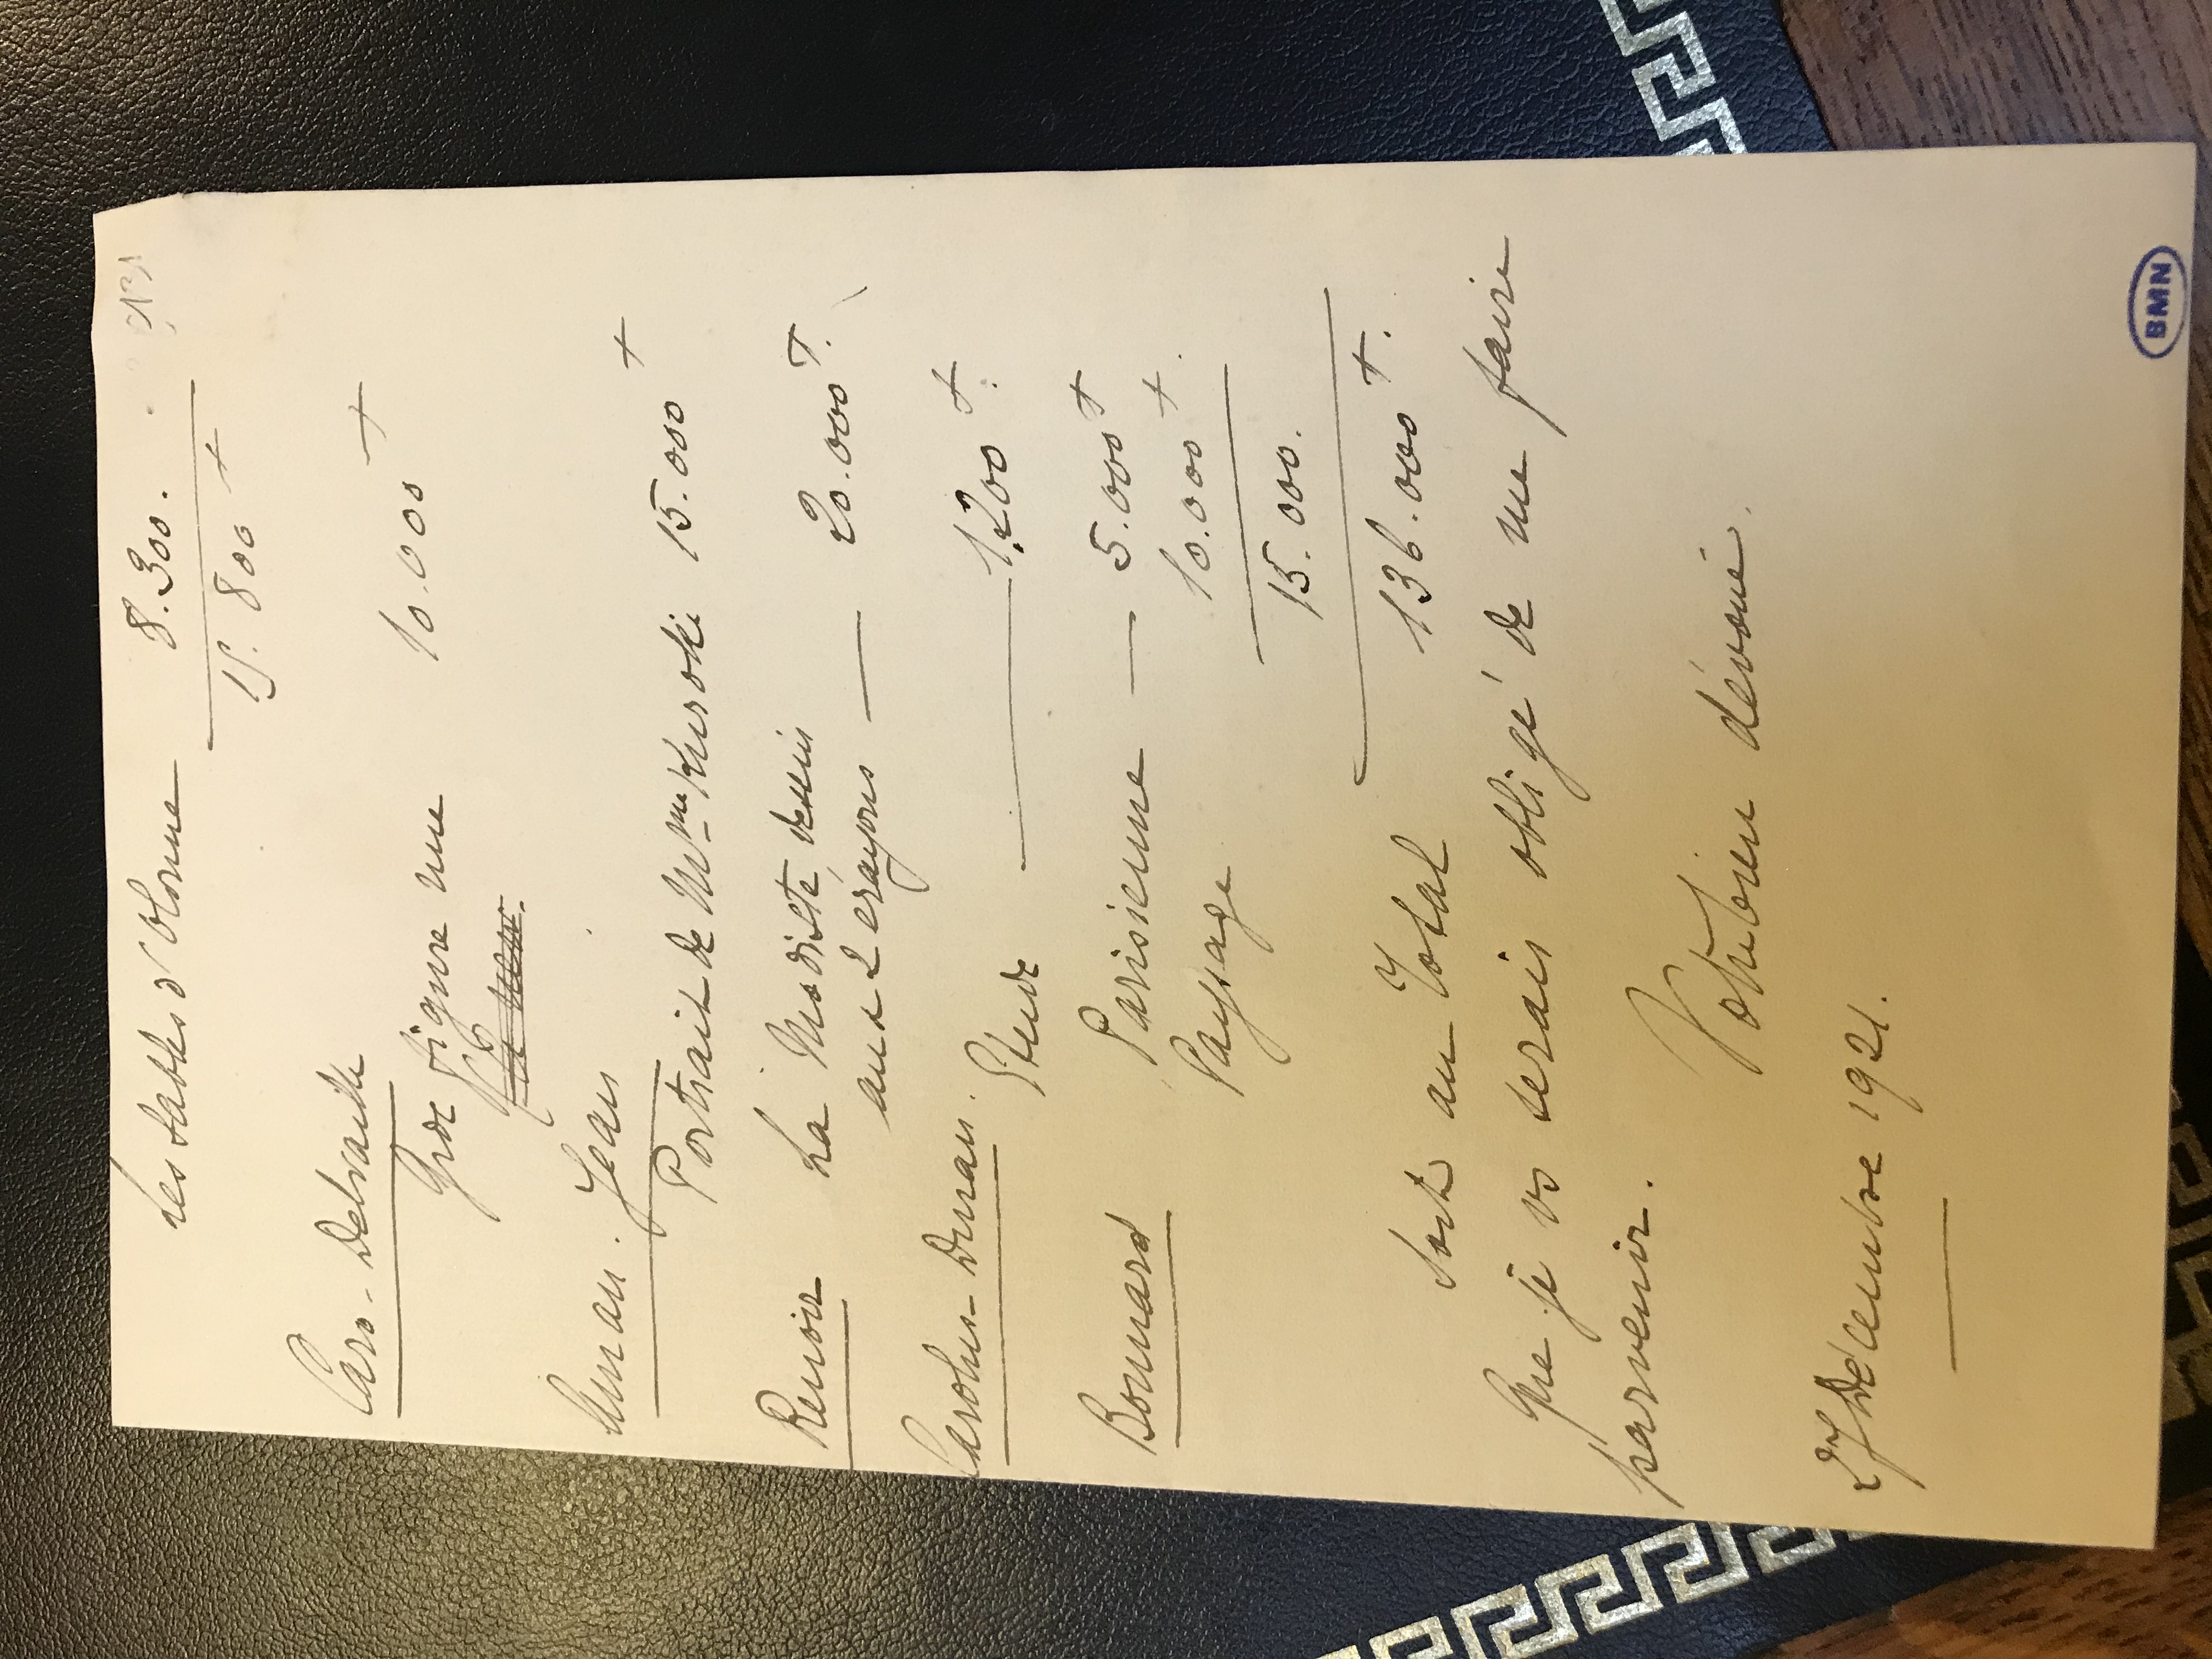 Les Sables d'Olonne 8.300.
15.800 +
Caro-Delvaille
Grde figure nue 10.000 +
Sunan. Jean
Portrait de Mme Kuroki 15.000 +
Renoir La Modiste, dessin
aux 2 crayons — 20.000 +.
Carolus-Duran. Etude — 1,200 +.
Bonnard Parisienne — 5.000 +
Paysage 10.000 +.
15.000.
Soit au Total 136.000 +.
Que je vs serais obligé de me faire
parvenir.
Votre bien dévoué.
27 Décembre 1921.
BMN